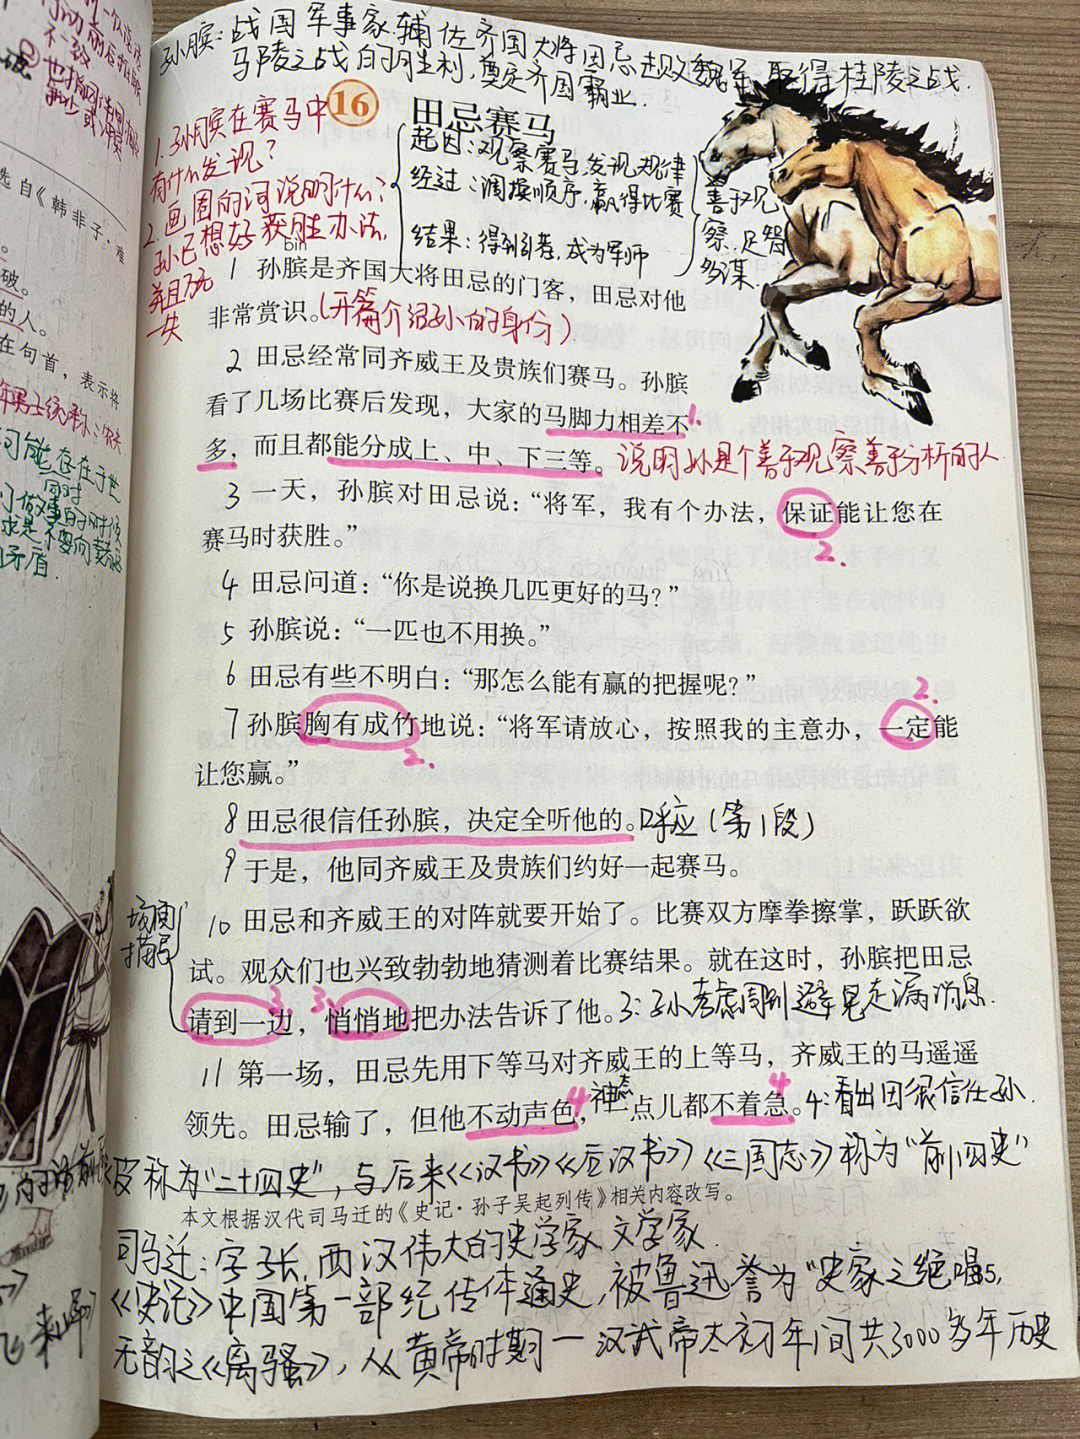 孙膑：战国军事家，辅佐齐国大将田忌
马陵之战的胜利，奠定齐国霸业.
取得桂陵之战.
16
田忌赛马
1.孙膑在赛马中
有什么发现？
2.画圈的词说明什么？
孙已想好获胜办法，
并且万无
一失
起因：观察赛马，发现规律
经过：调换顺序，赢得比赛
结果：得到引荐，成为军师
善于观
察，足智
多谋.
bìn
1 孙膑是齐国大将田忌的门客，田忌对他
非常赏识。(开篇介绍孙的身份)
2 田忌经常同齐威王及贵族们赛马。孙膑
看了几场比赛后发现，大家的马脚力相差不 1.
多，而且都能分成上、中、下三等。说明孙是个善于观察善于分析的人.
3 一天，孙膑对田忌说：“将军，我有个办法，保证能让您在
赛马时获胜。” 2.
4 田忌问道：“你是说换几匹更好的马？”
5 孙膑说：“一匹也不用换。”
6 田忌有些不明白：“那怎么能有赢的把握呢？” 2.
7 孙膑胸有成竹地说：“将军请放心，按照我的主意办，一定能
2.
让您赢。”
8 田忌很信任孙膑，决定全听他的。呼应(第1段)
9 于是，他同齐威王及贵族们约好一起赛马。
场面
描写
10 田忌和齐威王的对阵就要开始了。比赛双方摩拳擦掌，跃跃欲
试。观众们也兴致勃勃地猜测着比赛结果。就在这时，孙膑把田忌
请到一边，3.悄悄地把办法告诉了他。3:孙考虑周到避免走漏消息.
11 第一场，田忌先用下等马对齐威王的上等马，齐威王的马遥遥
领先。田忌输了，但他不动声色，4 神态 一点儿都不着急。4 4:看出田很信任孙.
称为“二十四史”，与后来《汉书》《后汉书》《三国志》称为“前四史”
本文根据汉代司马迁的《史记·孙子吴起列传》相关内容改写。
司马迁：字子长，西汉伟大的史学家，文学家.
《史记》中国第一部纪传体通史，被鲁迅誉为“史家之绝唱，
无韵之《离骚》，从黄帝时期一汉武帝太初年间共3000多年历史
选自《韩非子·难
破。
的人。
在句首，表示将